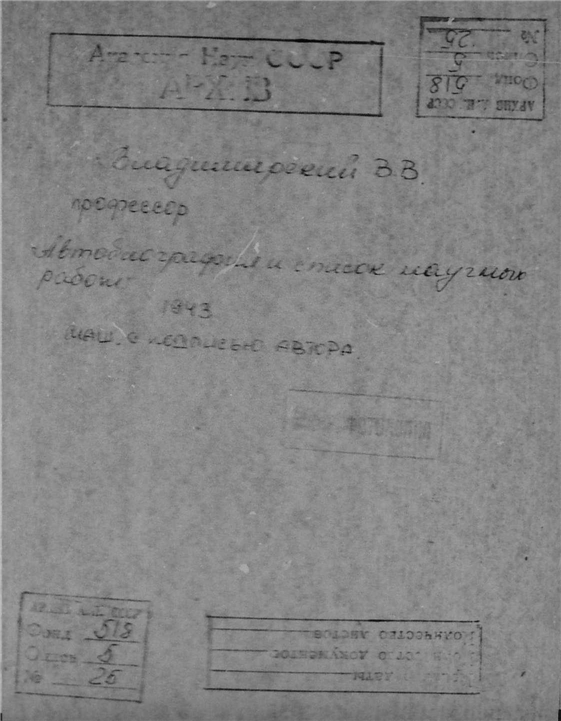 Академия Наук СССР
АРХИВ
АРХИВ А.Н. СССР
Фонд 518
Опись 5
№ 25
Владимирский В.В.
профессор
Автобиография и список научных
работ
1943
маш. с подписью автора.
АРХИВ А.Н. СССР
Фонд 518
Опись 5
№ 25
Количество листов
Количество документов
даты